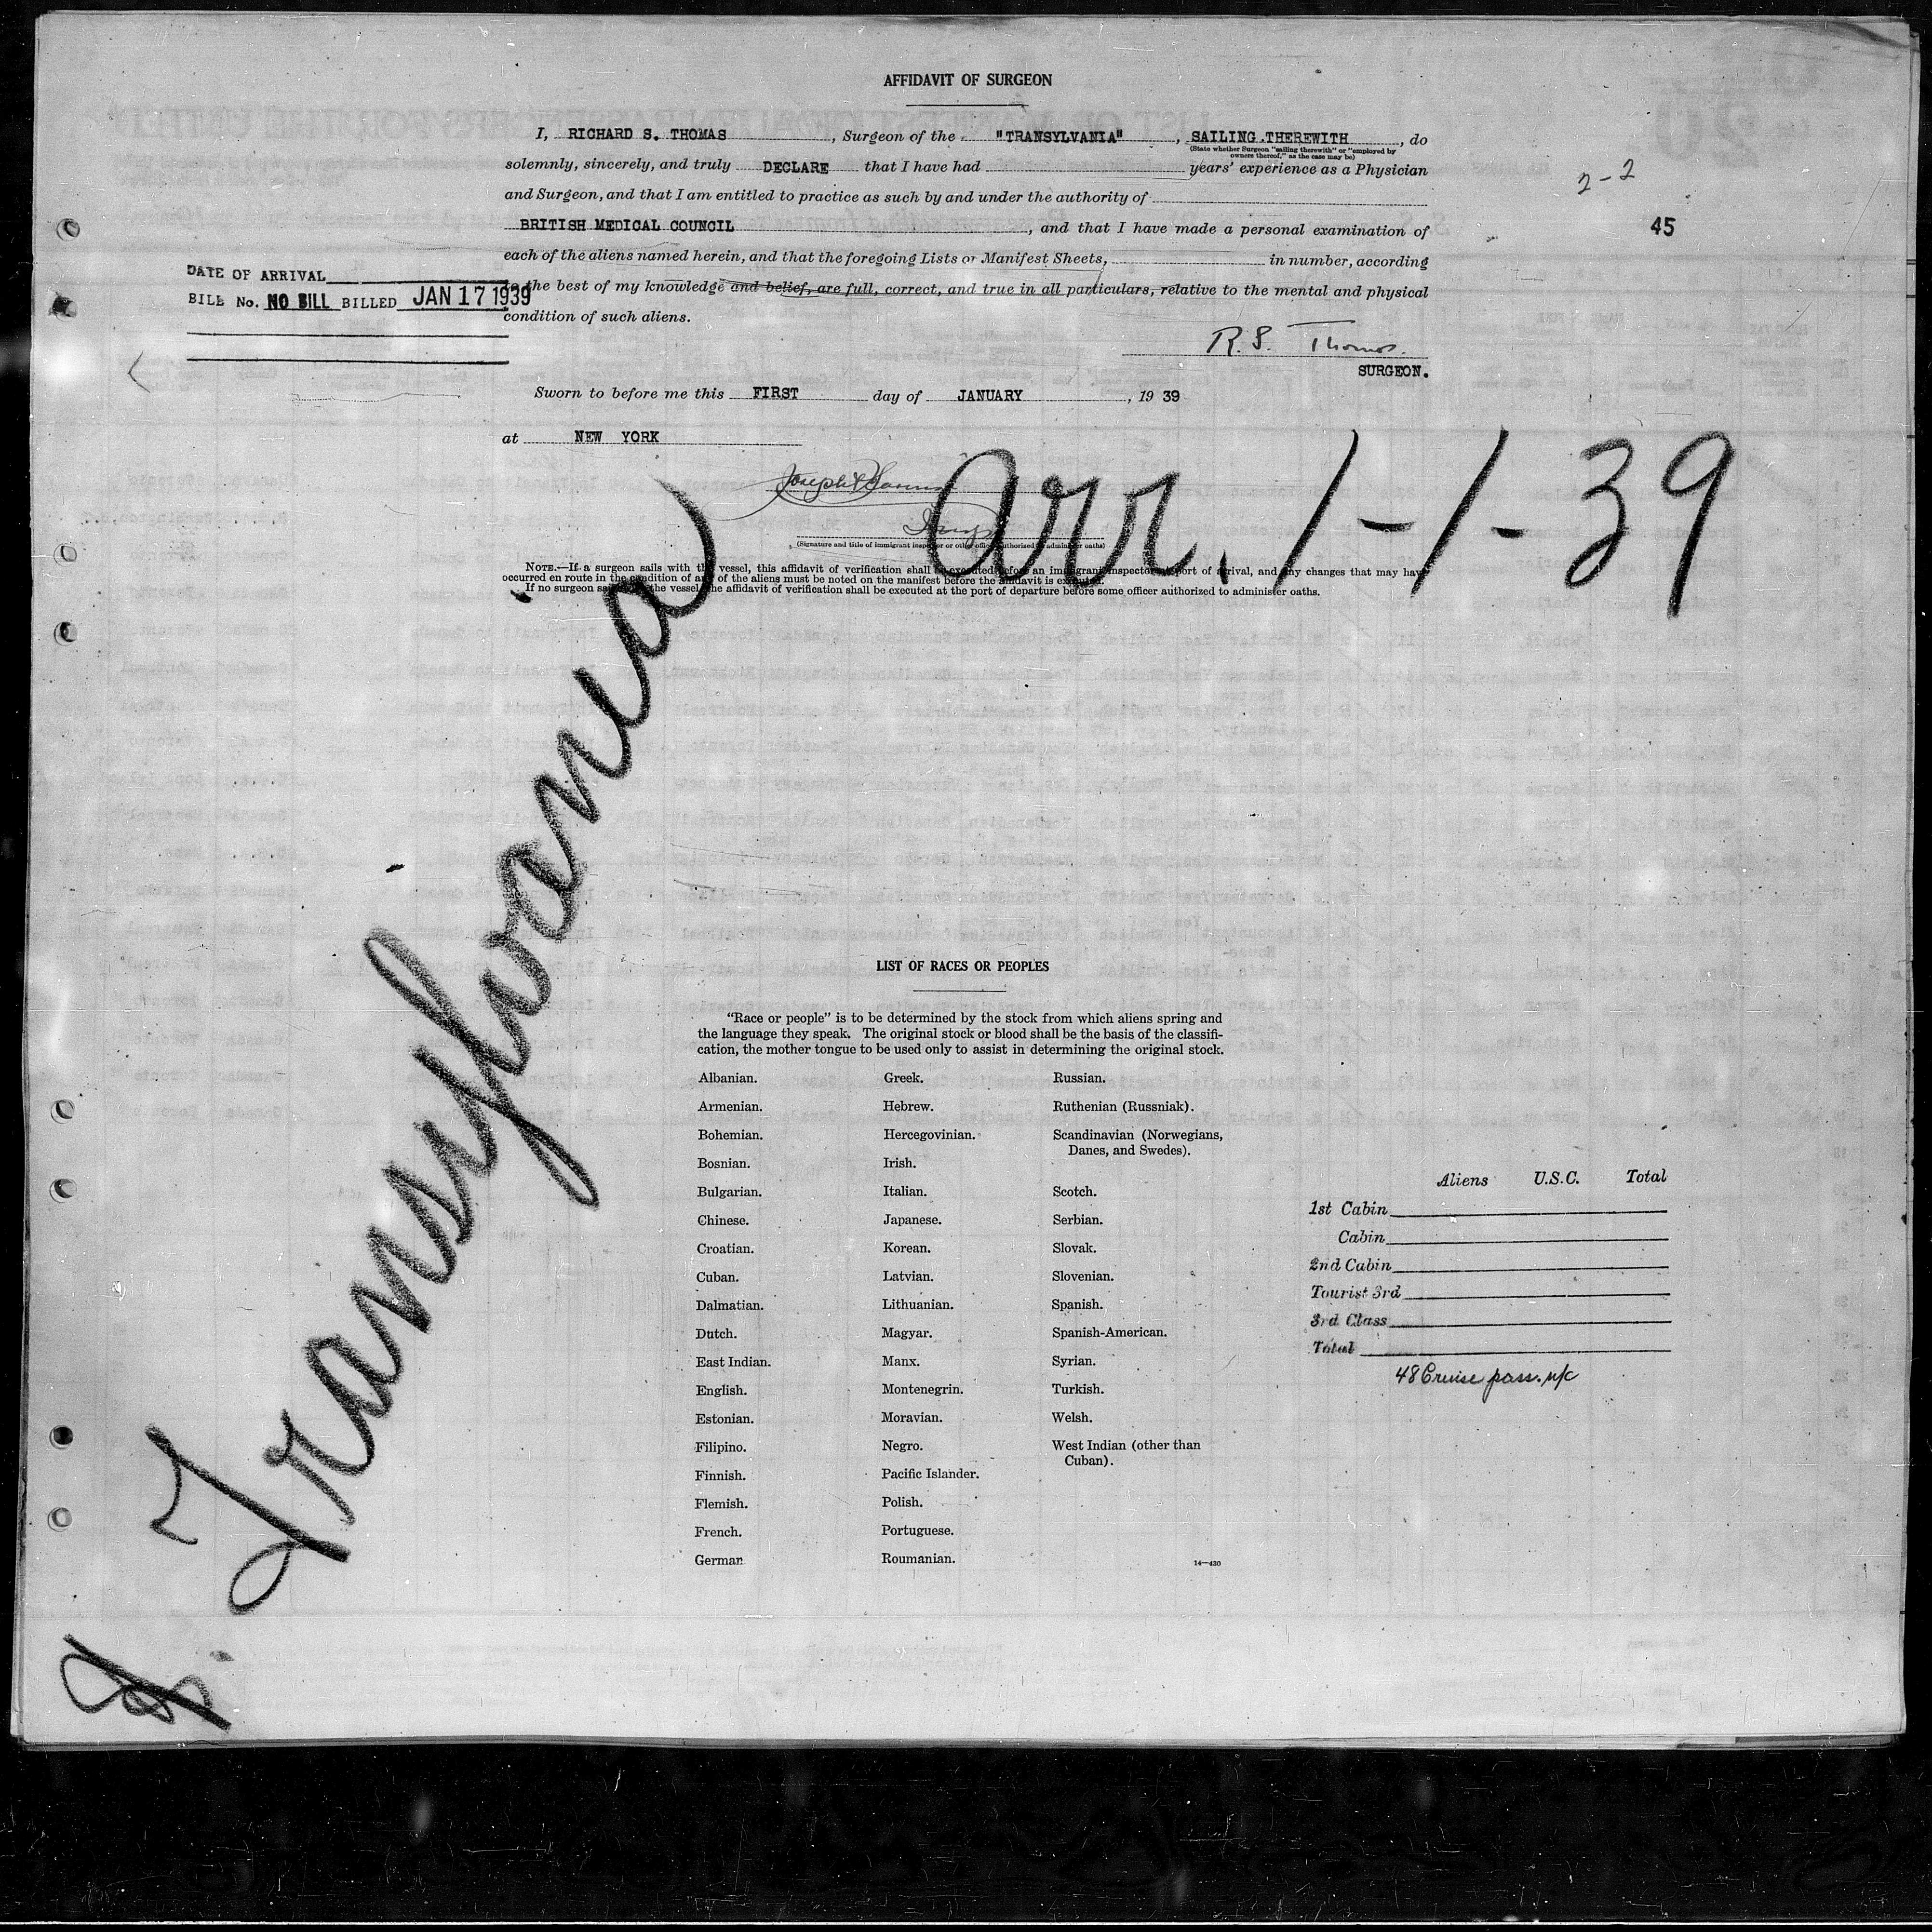 AFFIDAVIT OF SURGEON
I, RICHARD S. THOMAS, Surgeon of the "TRANSYLVANIA", SAILING THEREWITH, do
(State whether Surgeon "sailing therewith" or "employed by owners thereof," as the case may be)
solemnly, sincerely, and truly DECLARE that I have had years' experience as a Physician
and Surgeon, and that I am entitled to practice as such by and under the authority of
BRITISH MEDICAL COUNCIL, and that I have made a personal examination of
each of the aliens named herein, and that the foregoing Lists or Manifest Sheets, in number, according
to the best of my knowledge and belief, are full, correct, and true in all particulars, relative to the mental and physical
condition of such aliens.
2-2
45
DATE OF ARRIVAL
BILL No. NO BILL BILLED JAN 17 1939
R. S. Thomas.
SURGEON.
Sworn to before me this FIRST day of JANUARY, 19 39
at NEW YORK
Joseph
Insp
(Signature and title of immigrant inspector or other officer authorized to administer oaths)
Arr. 1-1-39
NOTE.—If a surgeon sails with the vessel, this affidavit of verification shall be executed before an immigrant inspector at port of arrival, and any changes that may have
occurred en route in the condition of any of the aliens must be noted on the manifest before the affidavit is executed.
If no surgeon sails with the vessel, the affidavit of verification shall be executed at the port of departure before some officer authorized to administer oaths.
Transylvania
LIST OF RACES OR PEOPLES
"Race or people" is to be determined by the stock from which aliens spring and
the language they speak. The original stock or blood shall be the basis of the classifi-
cation, the mother tongue to be used only to assist in determining the original stock.
Albanian.
Armenian.
Bohemian.
Bosnian.
Bulgarian.
Chinese.
Croatian.
Cuban.
Dalmatian.
Dutch.
East Indian.
English.
Estonian.
Filipino.
Finnish.
Flemish.
French.
German
Greek.
Hebrew.
Hercegovinian.
Irish.
Italian.
Japanese.
Korean.
Latvian.
Lithuanian.
Magyar.
Manx.
Montenegrin.
Moravian.
Negro.
Pacific Islander.
Polish.
Portuguese.
Roumanian.
Russian.
Ruthenian (Russniak).
Scandinavian (Norwegians,
Danes, and Swedes).
Scotch.
Serbian.
Slovak.
Slovenian.
Spanish.
Spanish-American.
Syrian.
Turkish.
Welsh.
West Indian (other than
Cuban).
14—430
Aliens U.S.C. Total
1st Cabin
Cabin
2nd Cabin
Tourist 3rd
3rd Class
Total
48 Cruise pass. n/c